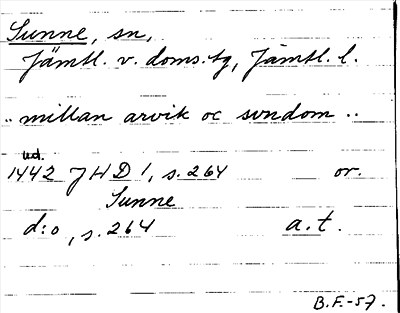 Sunne, sn,
Jämtl. v. doms:tg, Jämtl. l.
.. millan arvik oc svndom ..
ud.
1442 JHD 1, s. 264 or.
Sunne
d:o, s. 264 a.t.
B.F.-57.